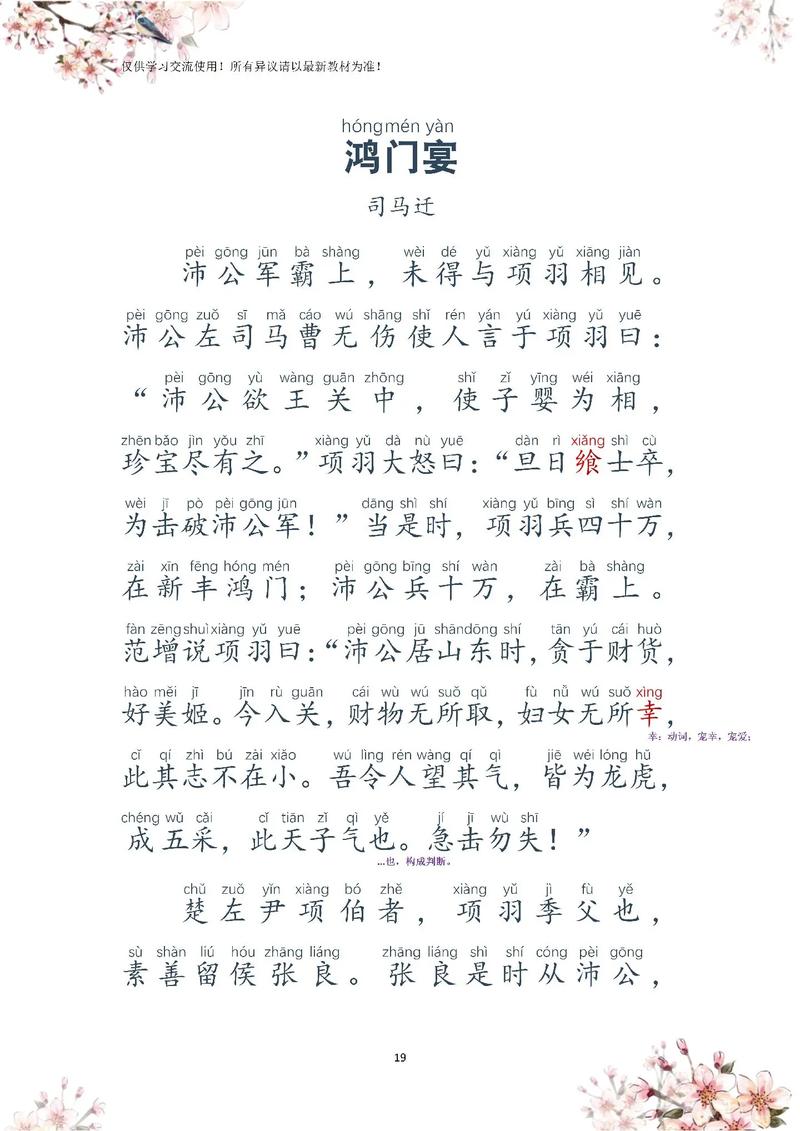 仅供学习交流使用！所有异议请以最新教材为准！
hóng mén yàn
鸿门宴
司马迁
pèi gōng jūn bà shàng wèi dé yǔ xiàng yǔ xiāng jiàn
沛公军霸上，未得与项羽相见。
pèi gōng zuǒ sī mǎ cáo wú shāng shǐ rén yán yú xiàng yǔ yuē
沛公左司马曹无伤使人言于项羽曰：
pèi gōng yù wàng guān zhōng shǐ zǐ yīng wéi xiāng
“沛公欲王关中，使子婴为相，
zhēn bǎo jìn yǒu zhī xiàng yǔ dà nù yuē dàn rì xiǎng shì cù
珍宝尽有之。”项羽大怒曰：“旦日飨士卒，
wèi jī pò pèi gōng jūn dāng shì shí xiàng yǔ bīng sì shí wàn
为击破沛公军！”当是时，项羽兵四十万，
zài xīn fēng hóng mén pèi gōng bīng shí wàn zài bà shàng
在新丰鸿门；沛公兵十万，在霸上。
fàn zēng shuì xiàng yǔ yuē pèi gōng jū shān dōng shí tān yú cái huò
范增说项羽曰：“沛公居山东时，贪于财货，
hào měi jī jīn rù guān cái wù wú suǒ qǔ fù nǚ wú suǒ xìng
好美姬。今入关，财物无所取，妇女无所幸，
幸：动词，宠幸，宠爱；
cǐ qí zhì bú zài xiǎo wú lìng rén wàng qí qì jiē wéi lóng hǔ
此其志不在小。吾令人望其气，皆为龙虎，
chéng wǔ cǎi cǐ tiān zǐ qì yě jí jī wù shī
成五采，此天子气也。急击勿失！”
...也，构成判断。
chǔ zuǒ yǐn xiàng bó zhě xiàng yǔ jì fù yě
楚左尹项伯者，项羽季父也，
sù shàn liú hóu zhāng liáng zhāng liáng shì shí cóng pèi gōng
素善留侯张良。张良是时从沛公，
19